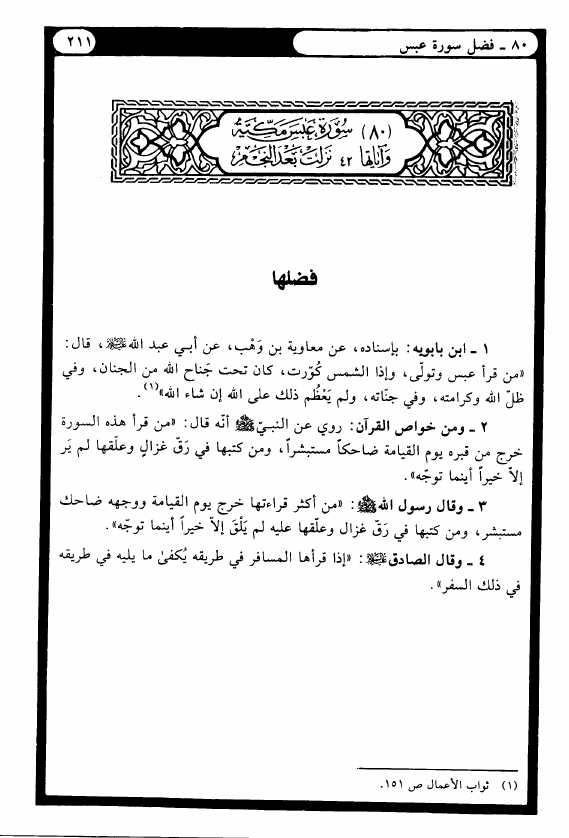 ٨٠ ـ فضل سورة عبس
٢١١
(٨٠) سُورَة عَبَسَ مَكِّيَّة
وَآيَاتُهَا ٤٢ نَزَلَتْ بَعْدَ النَّجْم
فضلها
١ ـ ابن بابويه: بإسناده، عن معاوية بن وَهْب، عن أبي عبد الله عليه السلام، قال:
«من قرأ عبس وتولّى، وإذا الشمس كُوّرت، كان تحت جَناح الله من الجنان، وفي
ظلّ الله وكرامته، وفي جنّاته، ولم يَعْظُم ذلك على الله إن شاء الله»(١).
٢ ـ ومن خواص القرآن: روي عن النبيّ ﷺ أنّه قال: «من قرأ هذه السورة
خرج من قبره يوم القيامة ضاحكاً مستبشراً، ومن كتبها في رَقّ غزالٍ وعلّقها لم يَر
إلاّ خيراً أينما توجّه».
٣ ـ وقال رسول الله ﷺ: «من أكثر قراءتها خرج يوم القيامة ووجهه ضاحك
مستبشر، ومن كتبها في رَقّ غزال وعلّقها عليه لم يَلْقَ إلاّ خيراً أينما توجّه».
٤ ـ وقال الصادق عليه السلام: «إذا قرأها المسافر في طريقه يُكفىٰ ما يليه في طريقه
في ذلك السفر».
(١) ثواب الأعمال ص ١٥١.